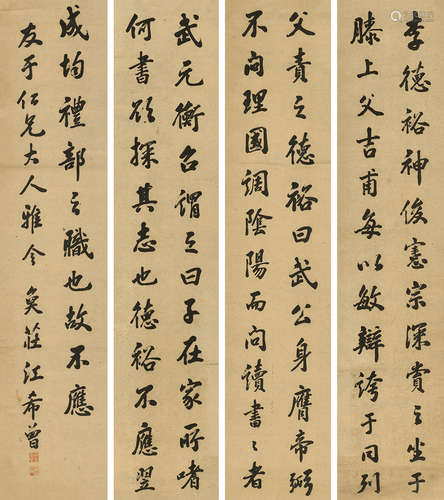 李德裕神俊憲宗深賞之坐于
膝上父吉甫每以敏辯誇于同列
武元衡召謂之曰子在家所嗜
何書欲探其志也德裕不應翌
父責之德裕曰武公身膺帝弼
不問理國調陰陽而問讀書々者
成均禮部之職也故不應
友于仁兄大人雅令 奐莊江希曾